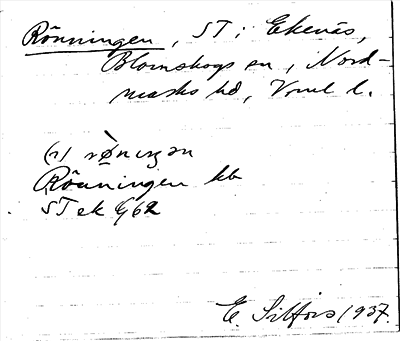 Rönningen, ST i Ekenäs,
Blomskogs sn, Nord-
marks hd, Vrml l.
(r) rø̀nıŋən
Rönningen kb
ST ek G62
E. Silfors 1937.